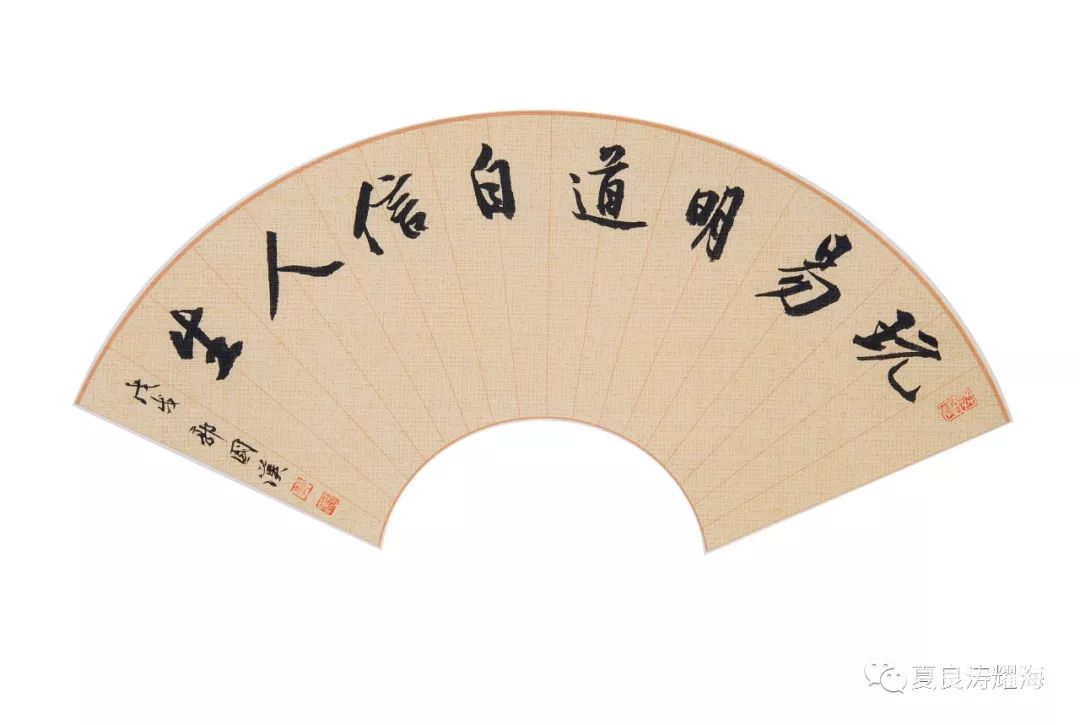 玩易明道自信人生
戊戌
國漢
夏良涛耀海